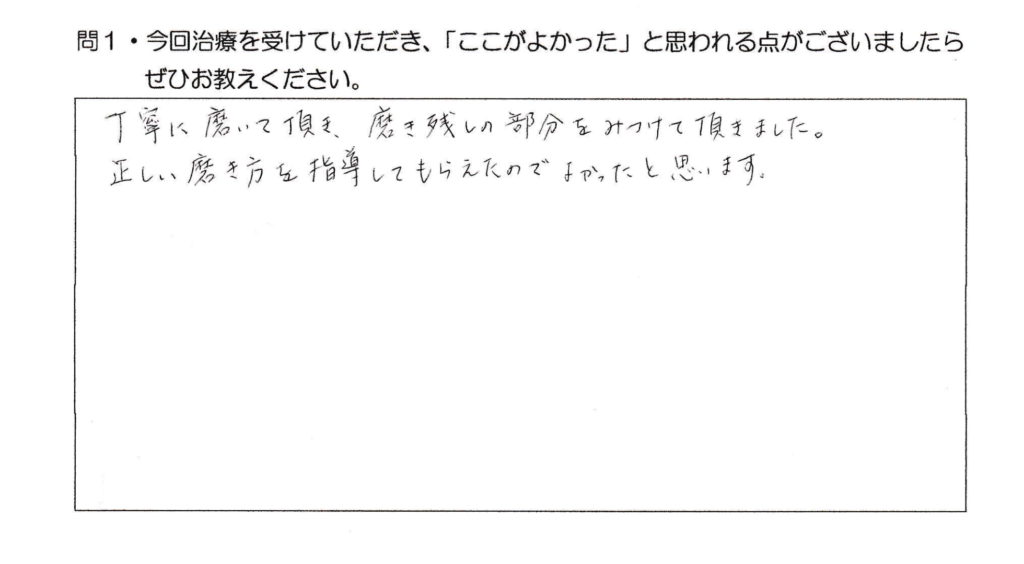 問１・今回治療を受けていただき、「ここがよかった」と思われる点がございましたら
ぜひお教えください。
丁寧に磨いて頂き、磨き残しの部分をみつけて頂きました。
正しい磨き方を指導してもらえたのでよかったと思います。